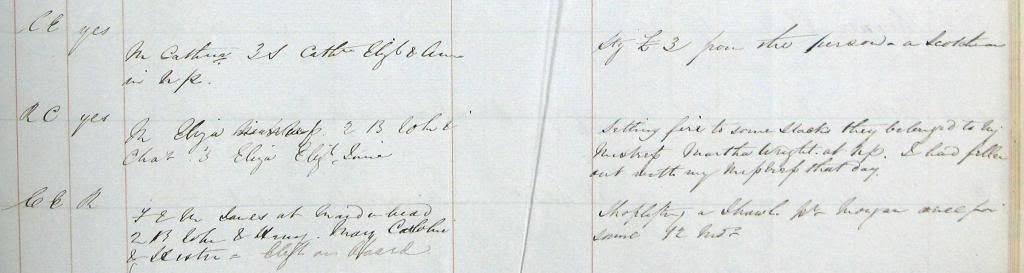 CE yes
M Cathne 3 S Cathne Elizth & Ann
in N.P.
Stg £3 from the person - a Scotchman
RC yes
M Eliza 2 B John &
Chas 3 Eliza Elizth Jane
Setting fire to some stacks they belonged to my
Mistress Martha Wright at N.P. I had fallen
out with my Mistress that day.
CE R
F & M James at Maidenhead
2 B John & Henry. Mary Caroline
& Hester - on Board
Shoplifting a Shawl pr Morgan once for
same 12 Mos